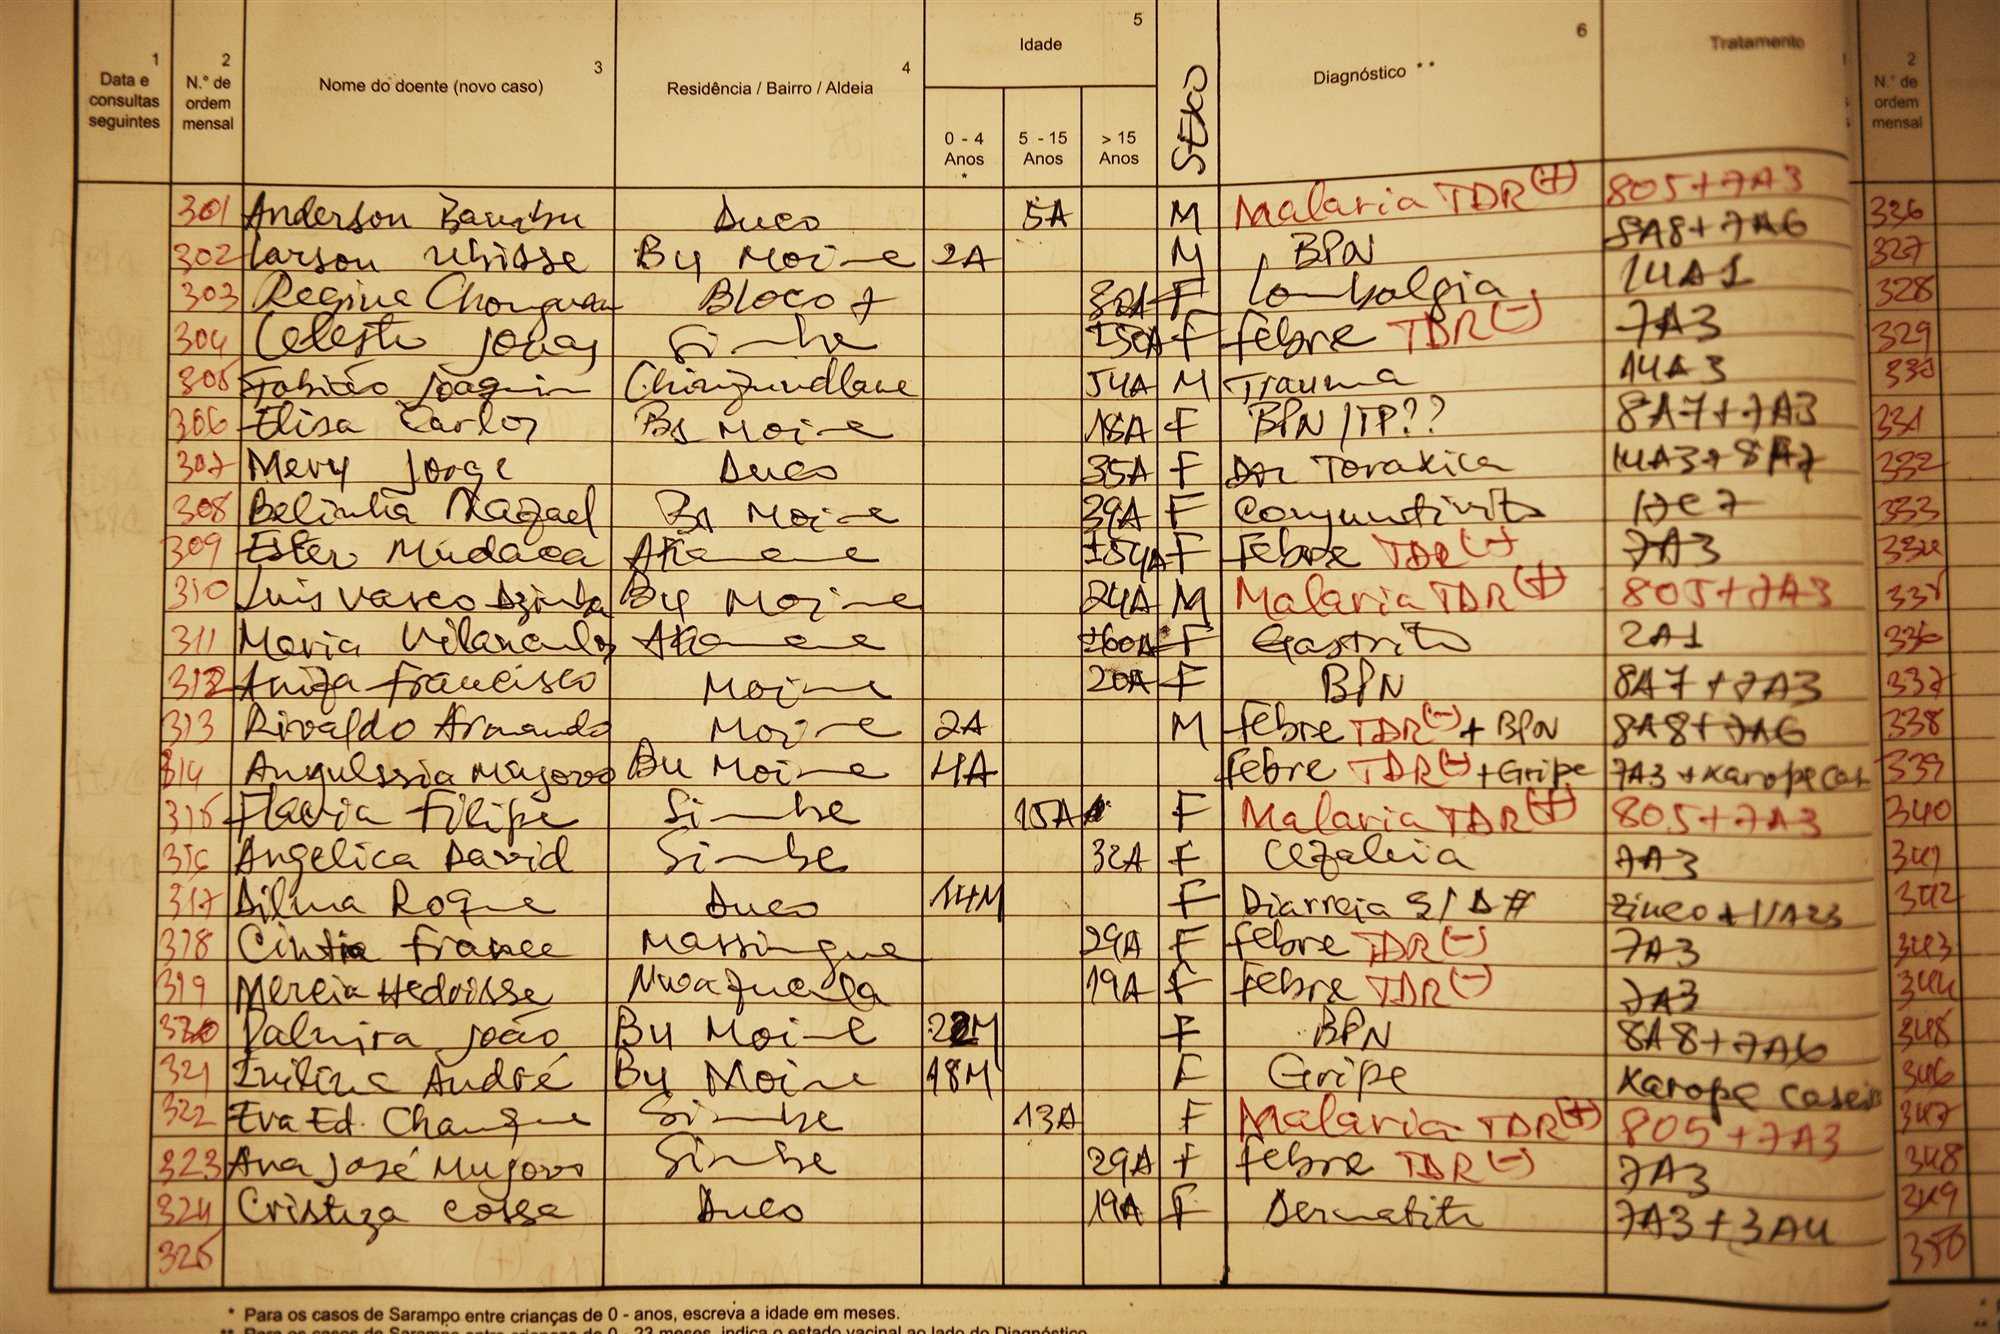 1 2 3 4 5 6 2
Data e consultas seguintes N.° de ordem mensal Nome do doente (novo caso) Residência / Bairro / Aldeia Idade SEXO Diagnóstico ** Tratamento N.° de ordem mensal
0 - 4 Anos * 5 - 15 Anos > 15 Anos
301 Anderson Duco 5A M Malaria TDR(+) 805+7A3 326
302 Larson Moine 2A M BPN 8A8+7A6 327
303 Regina Bloco 7 F Lombalgia 14A1 328
304 Celeste Jonas Simbe ±50A F febre TDR(-) 7A3 329
305 Fabião Joaquim 54A M Trauma 14A3 330
306 Elisa Carlos Moine 18A F BPN/TP?? 8A7+7A3 331
307 Mery Jorge Duco 35A F Dor Toraxica 14A3+8A7 332
308 Belinha Moine 39A F 17C7 333
309 Ester Mudaca ±54A F febre TDR(-) 7A3 334
310 Luis Vasco By Moine 24A M Malaria TDR(+) 805+7A3 335
311 Maria ±60A F Gastrite 2A1 336
312 Aniza Francisco Moine 20A F BPN 8A7+7A3 337
313 Rivaldo Armando Moine 2A M febre TDR(-)+BPN 8A8+7A6 338
314 Bu Moine 4A febre TDR(-)+Gripe 7A3+Xarope 339
315 Flavia Filipe Simbe 15A F Malaria TDR(+) 805+7A3 340
316 Angelica David Simbe 32A F 7A3 341
317 Dilma Roque Duco 14M F Diarreia S/D# Zinco 342
318 Massingue 29A F febre TDR(-) 7A3 343
319 19A F febre TDR(-) 7A3 344
320 Palmira João By Moine 22M F BPN 8A8+7A6 345
321 André By Moine 18M F Gripe Xarope 346
322 Eva Ed. Simbe 13A F Malaria TDR(+) 805+7A3 347
323 Ana José Simbe 29A F febre TDR(-) 7A3 348
324 Cossa Duco 19A F 7A3+3A4 349
325 350
* Para os casos de Sarampo entre crianças de 0 - anos, escreva a idade em meses.
** Para os casos de Sarampo entre crianças de 0 - 23 meses, indica o estado vacinal ao lado do Diagnóstico